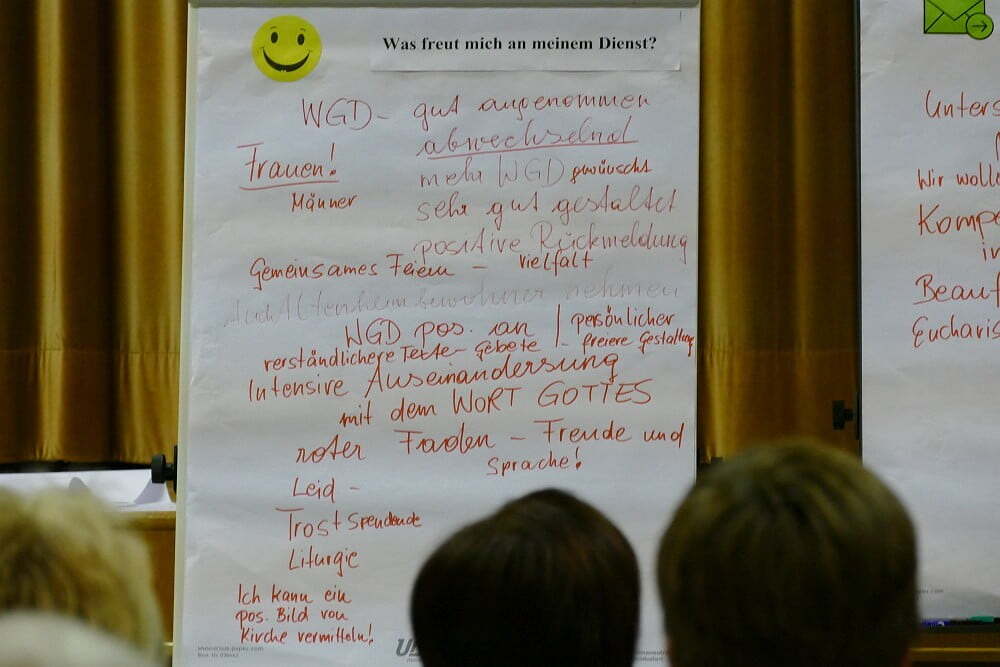 Was freut mich an meinem Dienst?
WGD - gut angenommen
abwechselnd
Frauen!
mehr WGD gewünscht
Männer
sehr gut gestaltet
positive Rückmeldung
Gemeinsames Feiern - vielfalt
Auch Altenheimbewohner nehmen
WGD pos. an | persönlicher
verständlichere Texte - Gebete | - freiere Gestaltung
Intensive Auseinandersung
mit dem WORT GOTTES
roter Faden - Freude und
Sprache!
Leid -
Trost spendende
Liturgie
Ich kann ein
pos. Bild von
Kirche vermitteln!
Unters
Wir wolle
Kompe
Beauf
Eucharis